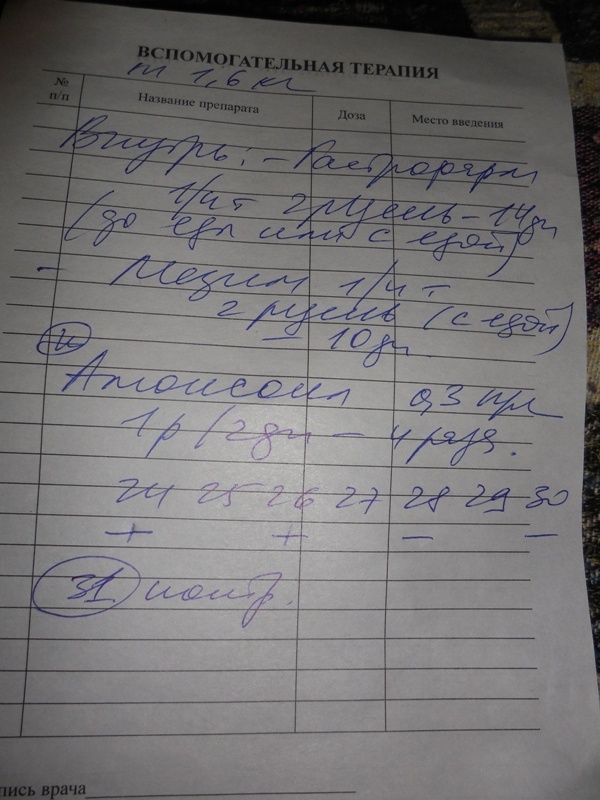 ВСПОМОГАТЕЛЬНАЯ ТЕРАПИЯ
m 1,6 кг
№ п/п Название препарата Доза Место введения
Внутрь: - Гастрофарм
1/4 т 2 р/день - 14 дн
(до еды или с едой)
- Мезим 1/4 т
2 р/день (с едой)
- 10 дн.
0,3 мл
1 р/2 дн - 4 раза.
24 25 26 27 28 29 30
+ + - -
31 контр.
пись врача